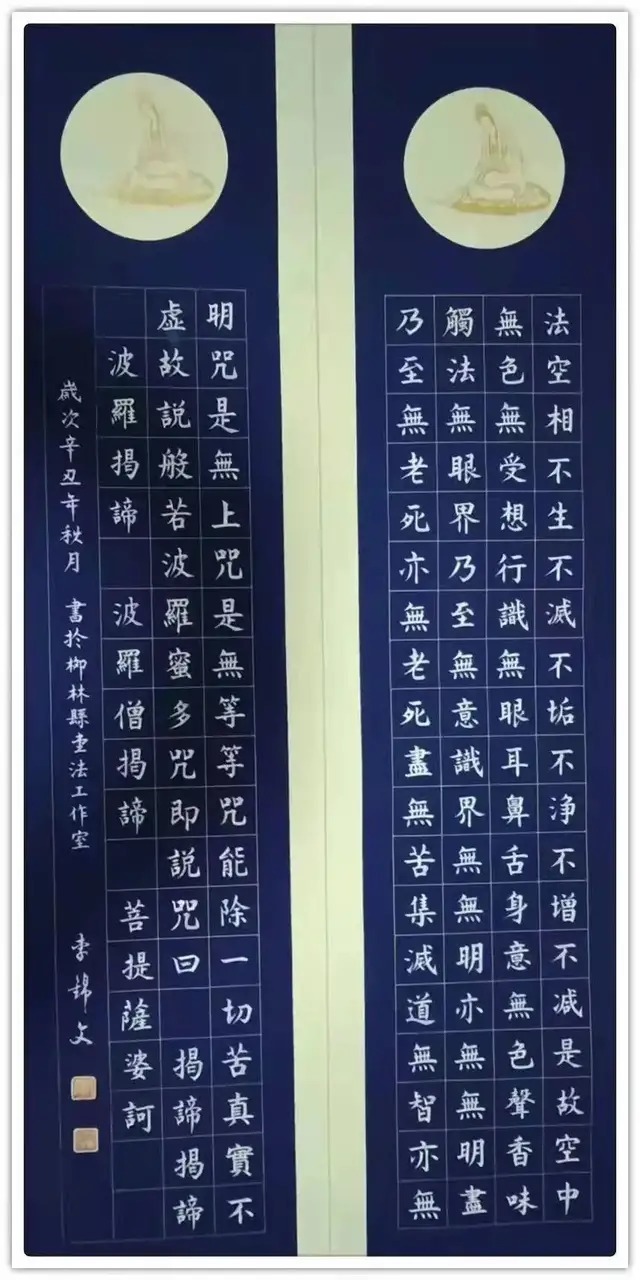 法空相不生不滅不垢不浄不增不减是故空中
無色無受想行識無眼耳鼻舌身意無色聲香味
觸法無眼界乃至無意識界無無明亦無無明盡
乃至無老死亦無老死盡無苦集滅道無智亦無
明咒是無上咒是無等等咒能除一切苦真實不
虛故説般若波羅蜜多咒即説咒曰 揭諦揭諦
波羅揭諦 波羅僧揭諦 菩提薩婆訶
歲次辛丑年秋月 書於柳林縣書法工作室 李錦文